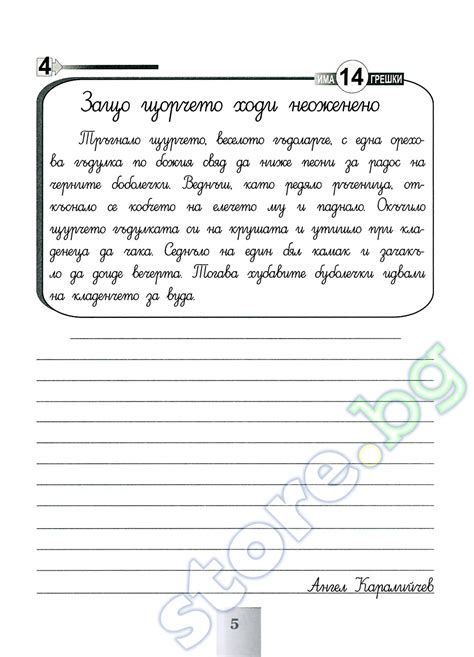 4
ИМА 14 ГРЕШКИ
Защо щорчето ходи неоженено
Тръгнало щурчето, веселото гъдоларче, с една орехо-
ва гъдулка по божия свяд да ниже песни за радос на
черните боболечки. Веднъш, като редяло ръченица, от-
къснало се кобчето на елечето му и паднало. Окъчило
щурчето гъдулката си на крушата и утишло при кла-
денеца да чака. Седнъло на един бял камак и зачакъ-
ло да доиде вечерта. Тогава хубавите буболечки идвали
на кладенчето за вуда.
Ангел Каралийчев
store.bg
5